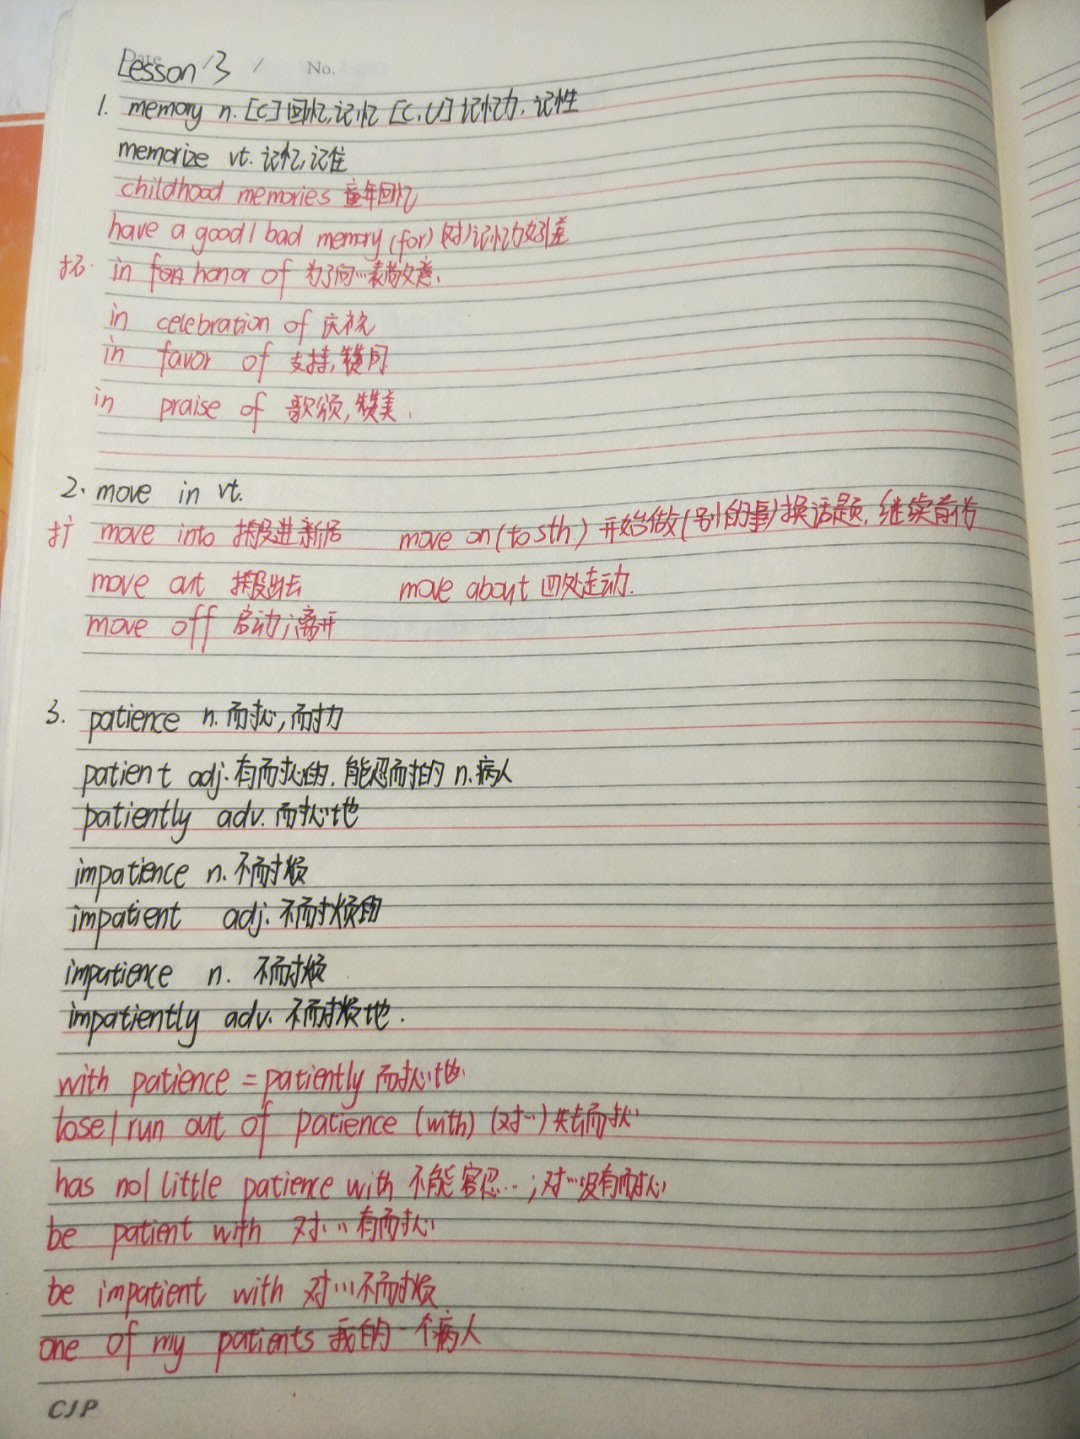 Date
No.
Lesson 3
1. memory n. [C]回忆,记忆 [C,U]记忆力,记性
memorize vt.记忆,记住
childhood memories 童年回忆
have a good/bad memory (for) (对)记忆力好/差
拓. in honor of 为了向…表尚敬意.
in celebration of 庆祝
in favor of 支持,赞同
in praise of 歌颂,赞美.
2. move in vt.
扩 move into 搬进新居 move on (to sth) 开始做(别的事)换话题,继续前传
move out 搬出去 move about 四处走动.
move off 启动;离开
3. patience n.耐心,耐力
patient adj.有耐心的,能忍耐的 n.病人
patiently adv.耐心地
impatience n.不耐烦
impatient adj.不耐烦的
impatience n. 不耐烦
impatiently adv.不耐烦地.
with patience = patiently 耐心地.
lose/run out of patience (with) (对…)失去耐心
has no/little patience with 不能容忍…;对…没有耐心
be patient with 对…有耐心
be impatient with 对…不耐烦
one of my patients 我的一个病人
CJP